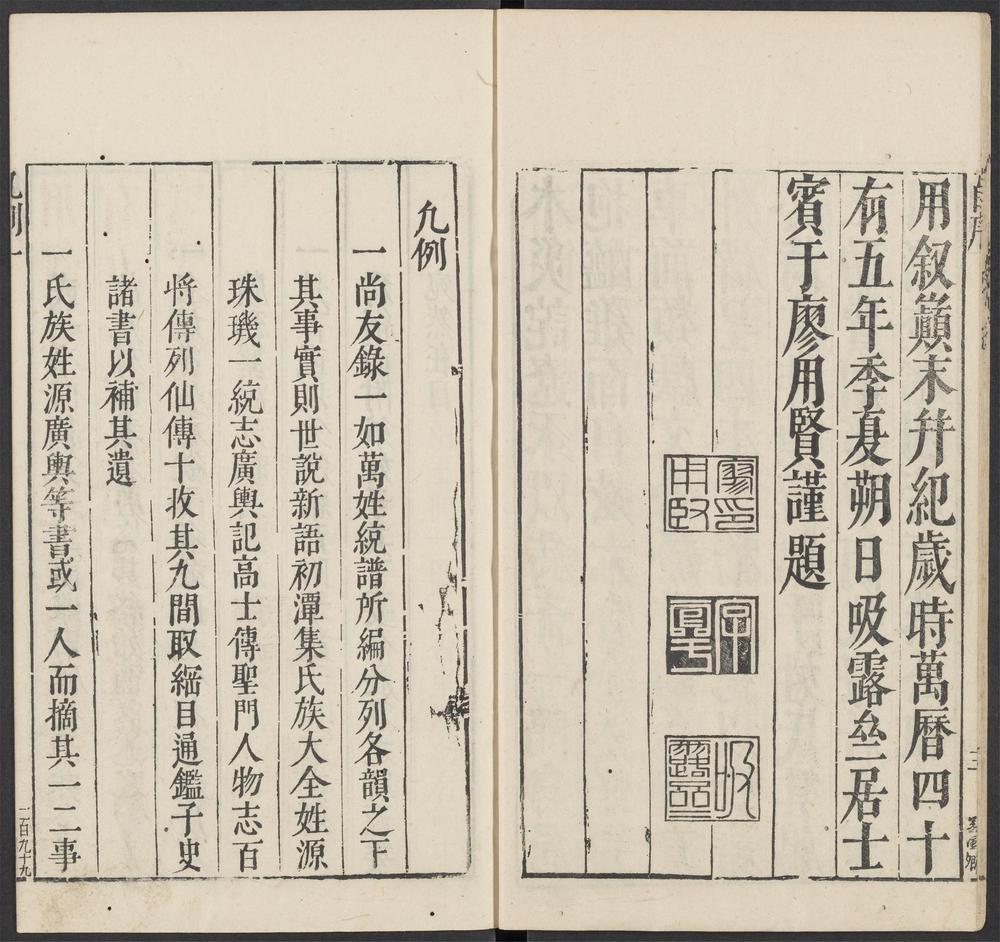 自序
用叙巔末幷紀歲時萬曆四十
有五年季夏朔日吸露亝居士
賓于廖用賢謹題
凡例
一尚友錄一如萬姓統譜所編分列各韻之下
其事實則世說新語初潭集氏族大全姓源
珠璣一統志廣輿記高士傳聖門人物志百
將傳列仙傳十收其九間取綱目通鑑子史
諸書以補其遺
一氏族姓源廣輿等書或一人而摘其一二事
凡例一
二百九十九